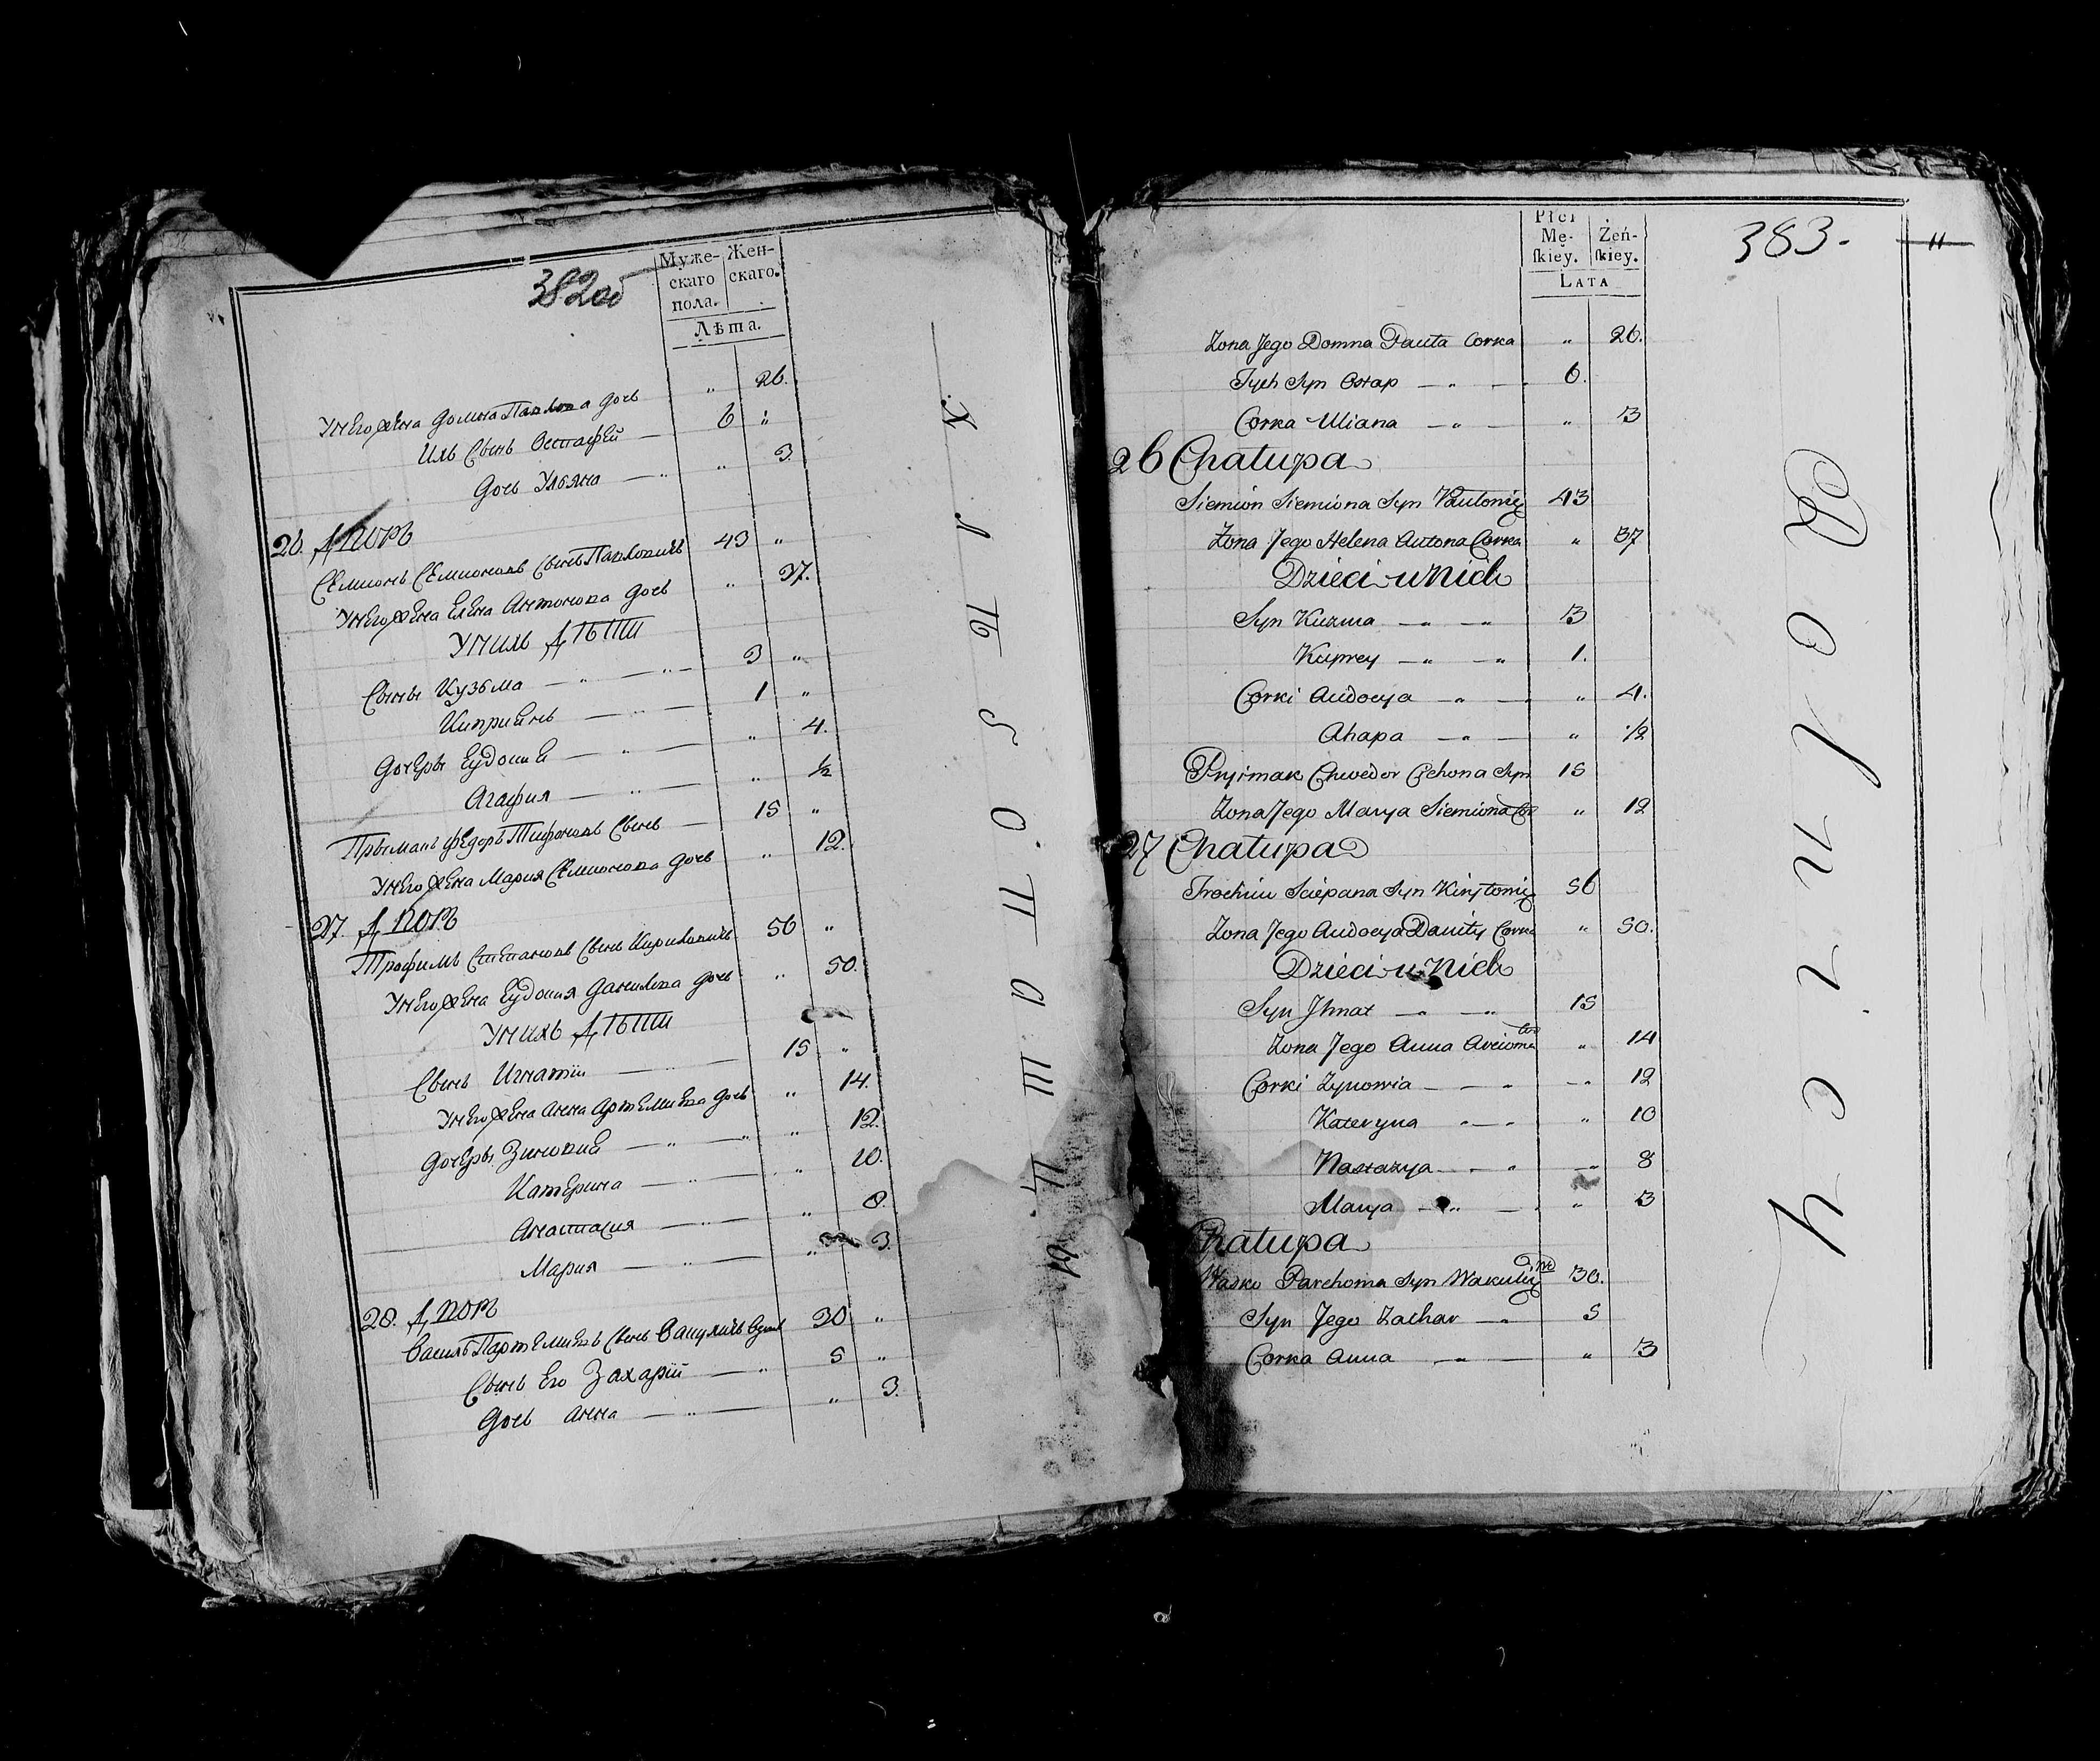 382об
Муже-
скаго
пола.
Жен-
скаго.
Лѣта.
У него жена Домна Павлова дочь „ 26.
Ихъ Сынъ Остафей — 6 „
Дочь Ульяна — „ „ 3.
26. Дворъ
Семионъ Семионовъ Сынъ Павловичъ 43 „
У него жена Елена Антонова дочь „ 37.
У нихъ Дѣти
Сыны Кузьма — „ — „ — 3 „
Киприенъ — „ — 1 „
Дочеры Еудокие — „ — „ 4.
Агафия — „ — „ ½
Прымакъ Федоръ Тифоновъ Сынъ — 15 „
У него жена Мария Семионова дочь „ 12.
27. Дворъ
Трофимъ Степановъ Сынъ Кириловичъ 56 „
У него жена Еудокия Данилова дочь „ 50.
У нихъ Дѣти
Сынъ Игнатiи — „ — 15 „
У него жена Анна Артемиева дочь „ 14.
Дочеры Зиновие — „ — „ „ 12.
Катерина — „ — „ 10.
Анастасия — „ — „ 8.
Мария — „ — „ 3.
28. Дворъ
Василь Партемиевъ Сынъ Вакуличъ 30 „
Сынъ Его Захарiй — „ 5 „
Дочь Анна — „ — „ 3.
Х л ѣ б о п а ш ц ы
383.
11
Płci
Mę-
ſkiey.
Żeń-
ſkiey.
LATA
Zona Jego Domna Pauła Corka „ 26.
Tych Syn Ostap — „ — 6.
Corka Uliana — „ — „ 3
26 Chałupa
Siemion Siemiona Syn Paułowicz 43
Zona Jego Helena Antona Corka „ 37
Dzieci u Nich
Syn Kuzma — „ — „ 3
Kuprey — „ — „ 1.
Corki Audocya — „ — „ 4.
Ahapa — „ — „ ½
Pryimak Chwedor Cichona Syn 15
Zona Jego Marya Siemiona Cor „ 12
27 Chałupa
Trochim Sciepana Syn Kiryłowicz 56
Zona Jego Audocya Daniły Corka „ 50.
Dzieci u Nich
Syn Jhnat — „ — „ 15
Zona Jego Anna Arcioma Cor „ 14
Corki Zynowia — — „ — „ 12
Kateryna „ — „ „ 10
Nastazya — — „ — „ 8
Marya — „ — „ 3
Chałupa
Wasko Parchoma Syn Wakulicz Wd 30.
Syn Jego Zachar — „ 5
Corka Anna — „ — „ 3
R o l n i c y